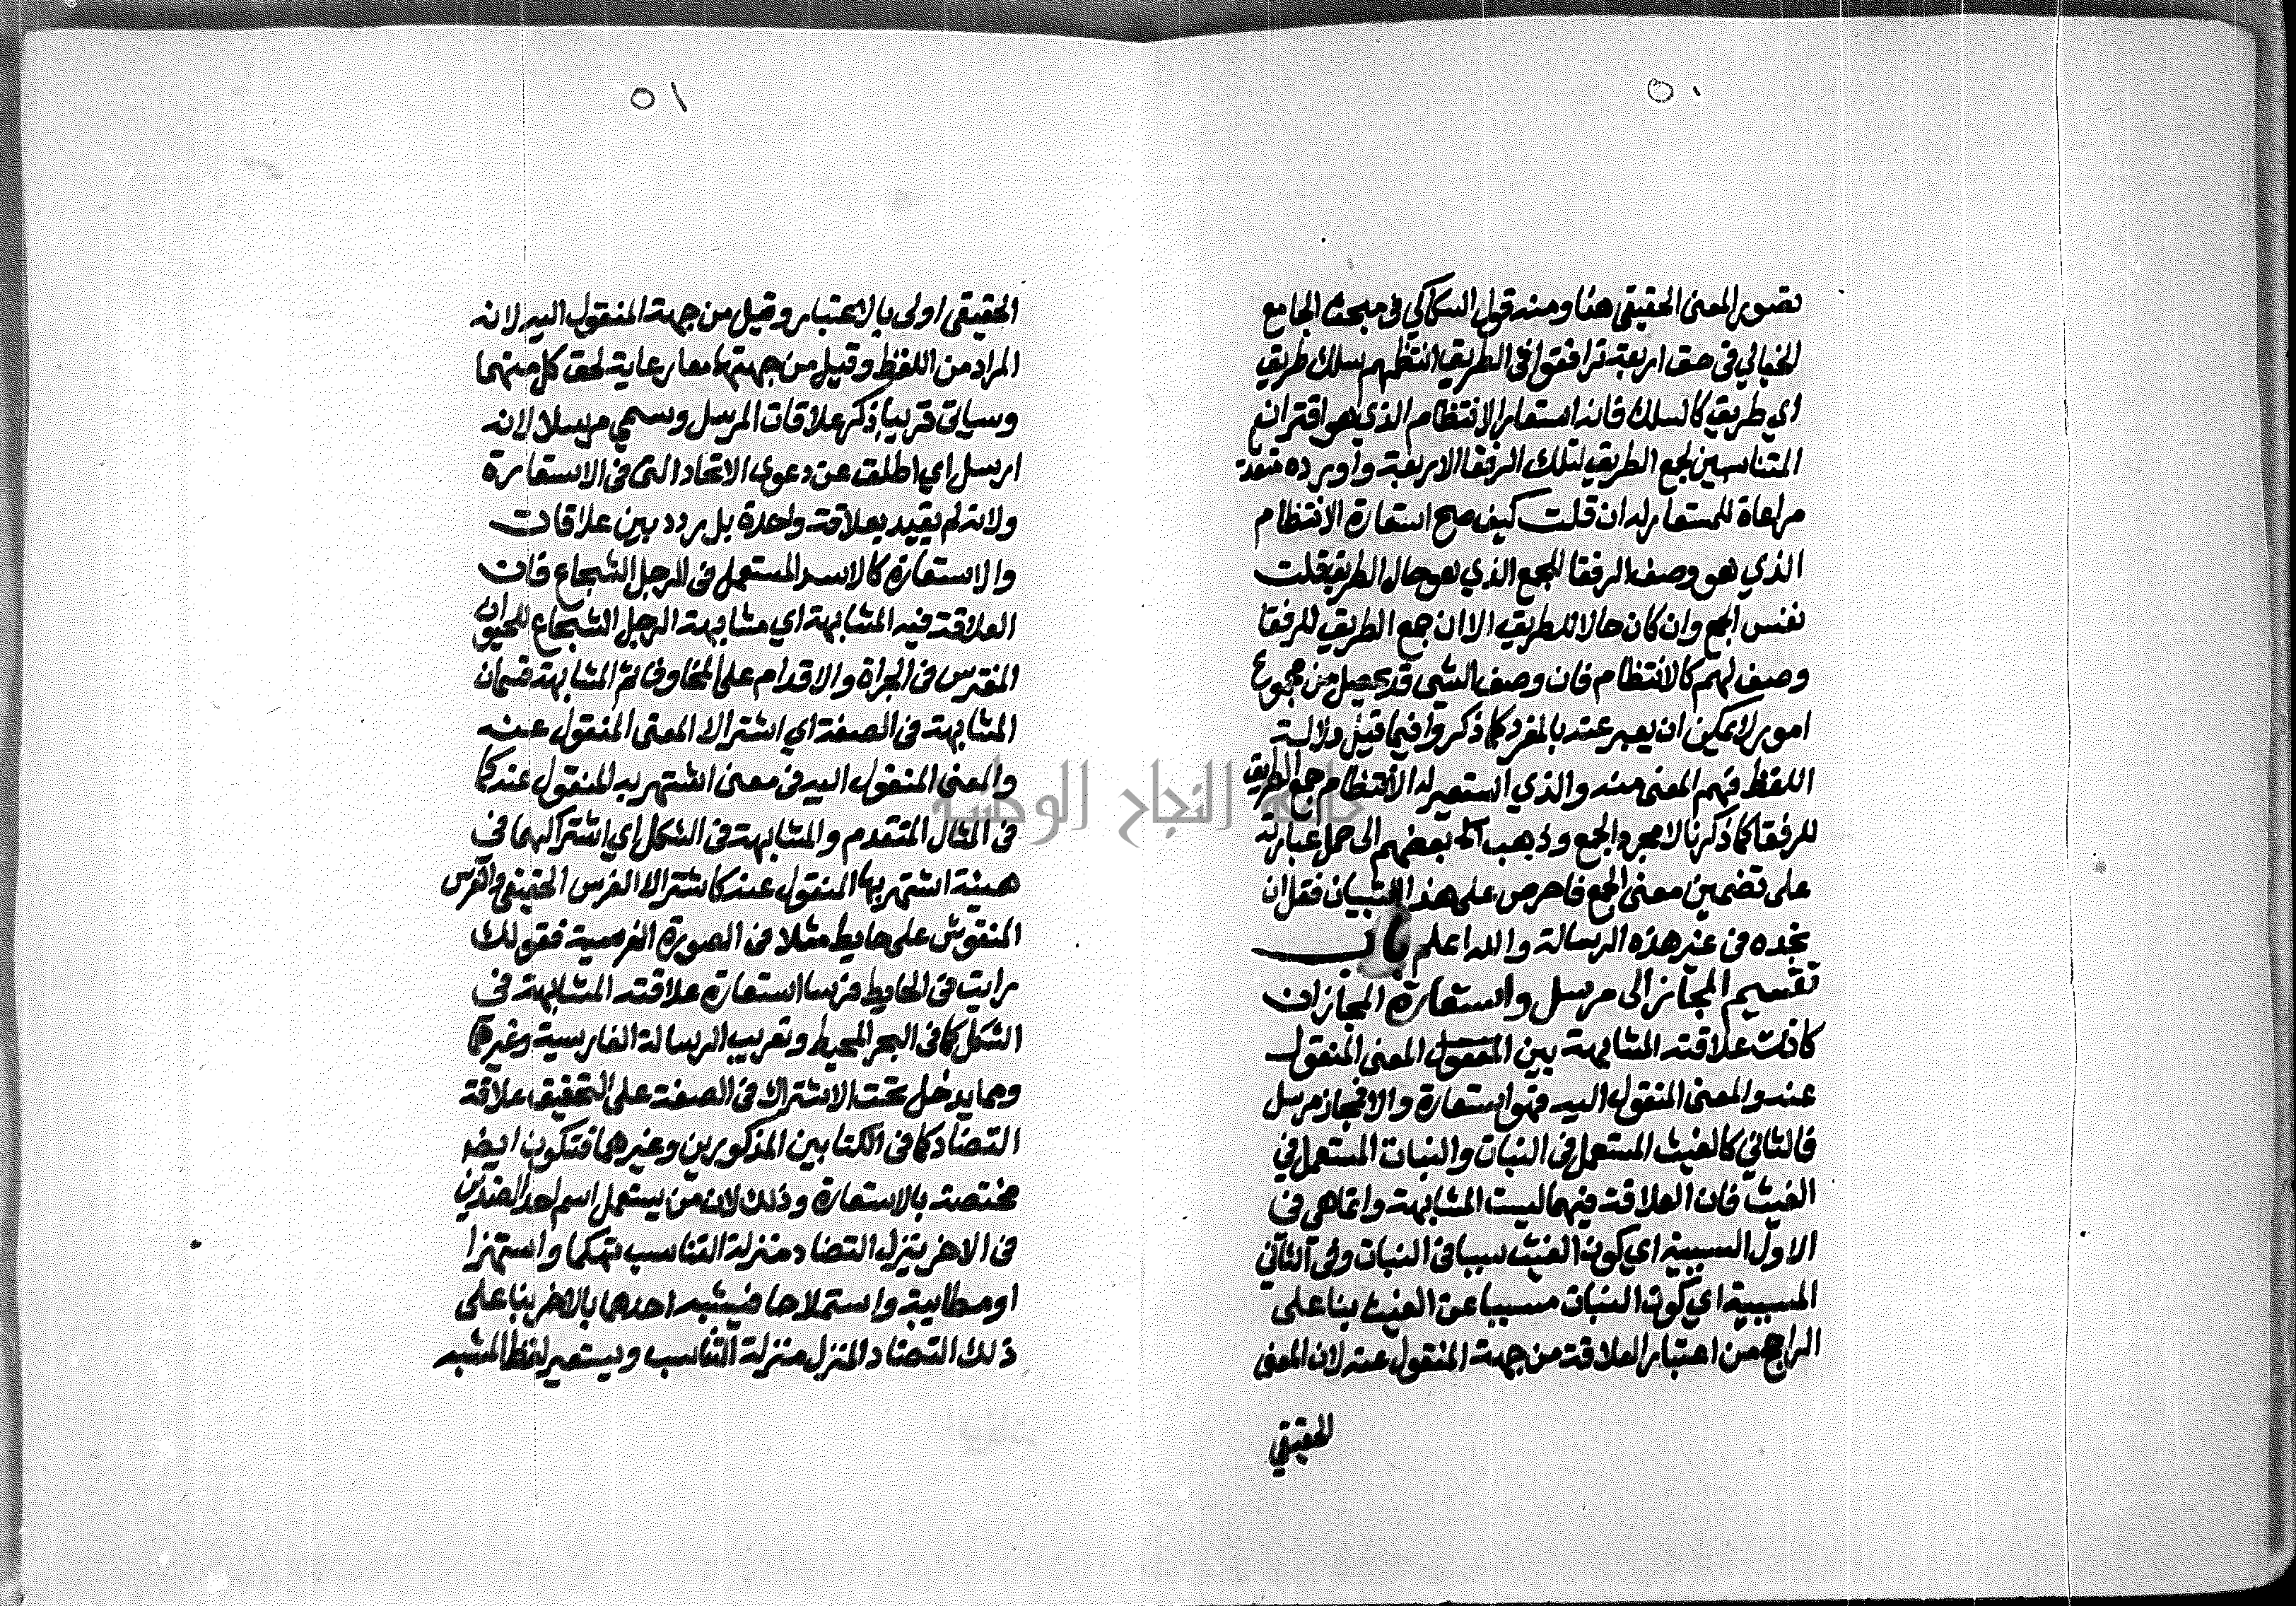 ٥٠
تصوير المعنى الحقيقي هنا ومنه قول السكاكي في مبحث الجامع
الخيالي في حق اربعة ترافقوا في الطريق انتظمهم سلك طريق
اي طريق كالسلك فانه استعار الانتظام الذي هو اقتران
المتناسبين لجمع الطريق لتلك الرفقا الاربعة واورده
مراعاة للمستعار له ان قلت كيف صح استعارة الانتظام
الذي هو وصف الرفقا للجمع الذي هو حال الطريق قلت
نفس الجمع وان كان حالا للطريق الا ان جمع الطريق للرفقا
وصف لهم كالانتظام فان وصف الشي قد يحصل من مجموع
امور لا يمكن ان يعبر عنه بالمفرد كما ذكروا فيما قيل دلالة
اللفظ فهم المعنى منه والذي استعير له الانتظام جمع الطريق
للرفقا كما ذكرنا لا مجرد الجمع وذهب بعضهم الى حمل عبارته
على تضمين معنى الجمع فاحرص على هذا التبيان فقل ان
تجده في غير هذه الرسالة والله اعلم باب
تقسيم المجاز الى مرسل واستعارة المجاز ان
كانت علاقته المشابهة بين المعنى المنقول
عنه والمعنى المنقول اليه فهو استعارة والا فمجاز مرسل
فالثاني كالغيث المستعمل في النبات والنبات المستعمل في
الغيث فان العلاقة فيهما ليست المشابهة وانما هي في
الاول السببية اي كون الغيث سببا في النبات وفي الثاني
المسببية اي كون النبات مسببا عن الغيث بنا على
الراجح من اعتبار العلاقة من جهة المنقول عنه لان المعنى
الحقيقي
٥١
الحقيقي اولى بالاعتبار وقيل من جهة المنقول اليه لانه
المراد من اللفظ وقيل من جهتهما معا رعاية لحق كل منهما
وسياتي قريبا ذكر علاقات المرسل وسمي مرسلا لانه
ارسل اي اطلق عن دعوى الاتحاد التي في الاستعارة
ولانه لم يقيد بعلاقة واحدة بل ردد بين علاقات
والاستعارة كالاسد المستعمل في الرجل الشجاع فان
العلاقة فيه المشابهة اي مشابهة الرجل الشجاع للحيوان
المفترس في الجراة والاقدام على المخاوف ثم المشابهة قسمان
المشابهة في الصفة اي اشتراك المعنى المنقول عنه
والمعنى المنقول اليه في معنى اشتهر به المنقول عنه كما
في المثال المتقدم والمشابهة في الشكل اي اشتراكهما في
هيئة اشتهر بها المنقول عنه كاشتراك الفرس الحقيقي والفرس
المنقوش على حايط مثلا في الصورة الفرسية فقولك
رايت في الحايط فرسا استعارة علاقته المشابهة في
الشكل كما في البحر المحيط وتعريب الرسالة الفارسية وغيرهما
ومما يدخل تحت الاشتراك في الصفة على التحقيق علاقة
التضاد كما في الكتابين المذكورين وغيرهما فتكون ايضا
مختصة بالاستعارة وذلك لان من يستعمل اسم احد الضدين
في الاخر ينزل التضاد منزلة التناسب تهكما واستهزا
او مطايبة واستملاحا فيشبه احدها بالاخر بنا على
ذلك التضاد المنزل منزلة التناسب ويستعير لفظ المشبه
جامعة النجاح الوطنية